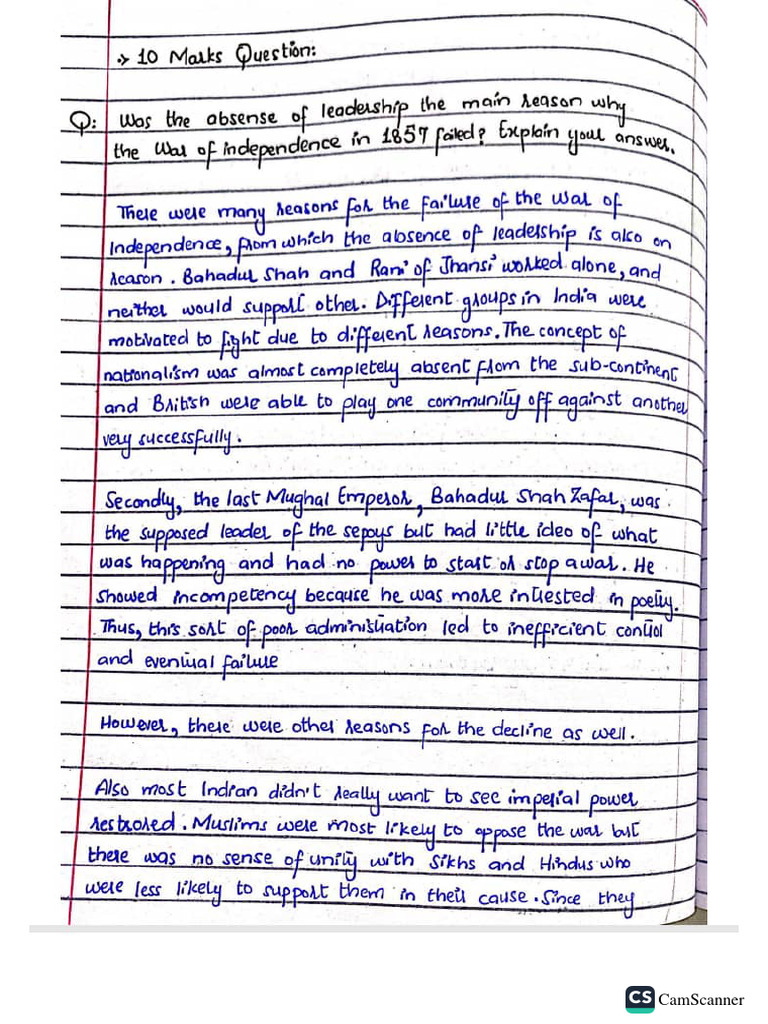 → 10 Marks Question:
Q: Was the absense of leadership the main reason why
the War of independence in 1857 failed? Explain your answer.
There were many reasons for the failure of the war of
independence, from which the absence of leadership is also on
reason. Bahadur Shah and Rani of Jhansi worked alone, and
neither would support other. Different groups in India were
motivated to fight due to different reasons. The concept of
nationalism was almost completely absent from the sub-continent
and British were able to play one community off against another
very successfully.
Secondly, the last Mughal Emperor, Bahadur Shah Zafar, was
the supposed leader of the sepoys but had little ideo of what
was happening and had no power to start or stop a war. He
showed incompetency because he was more intrested in poetry.
Thus, this sort of poor administration led to inefficient control
and eventual failure
However, there were other reasons for the decline as well.
Also most Indian didn't really want to see imperial power
restrored. Muslims were most likely to oppose the war but
there was no sense of unity with Sikhs and Hindus who
were less likely to support them in their cause. Since they
CS CamScanner